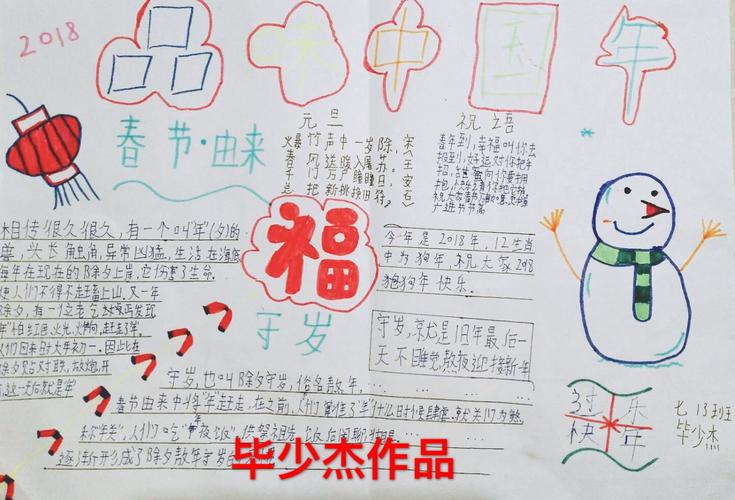 2018
品味中国年
春节·由来
元旦
火暴竹声中一岁除，宋
春风送暖入屠苏。王
千门万户瞳瞳日，安
总把新挑换旧符。石
祝语
春年到，幸福叫你去
报到，好运对你把手
招，吉
相传很久很久，有一个叫"年"(夕)的
兽，头长角虫角，异常凶猛，生活在海底
每年在现在的除夕上岸，它伤害了生命。
使人们不得不走
上山。又一年
除夕，有一位老
年"怕红色火光
人们回来时大年初一。因此在
除夕贝占对联、放炮、开
福
守岁
今年是2018年，12生肖
中为狗年，祝大家2018
狗年快乐。
守岁，就是旧年最后一
天不睡觉熬夜迎接新年
守岁，也叫除夕守岁，俗名熬年，……
春节由来中将"年"赶走，在之前，人们
人们吃"年夜饭"
逐渐形成了除夕熬年守岁
过年
快乐
七13班
毕少杰
毕少杰作品